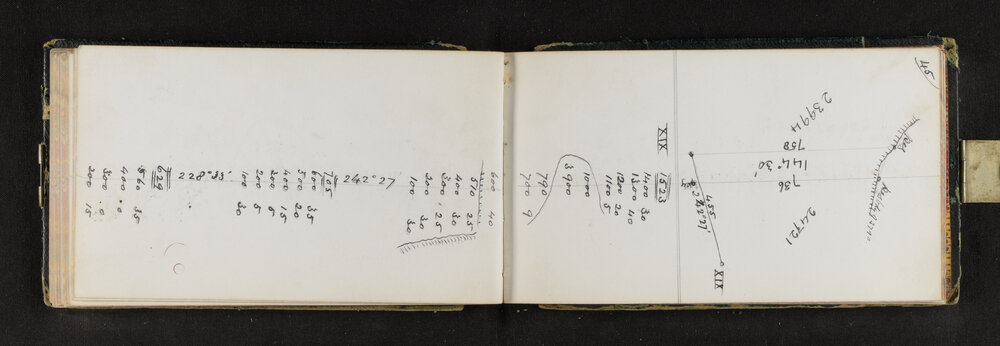 45
23994
758
144° 30'
736
24721
XIX
455
242°27'
XIX
1523
1400 30
1300 40
1200 20
1100 5
1000
3900
790
700 9
600 40
510 25
400 30
300 25
200 30
100 30
242°27
705
600 35
500 20
400 15
300 5
200 5
100 30
228°33'
629
560 35
400 0
300 0
200 15